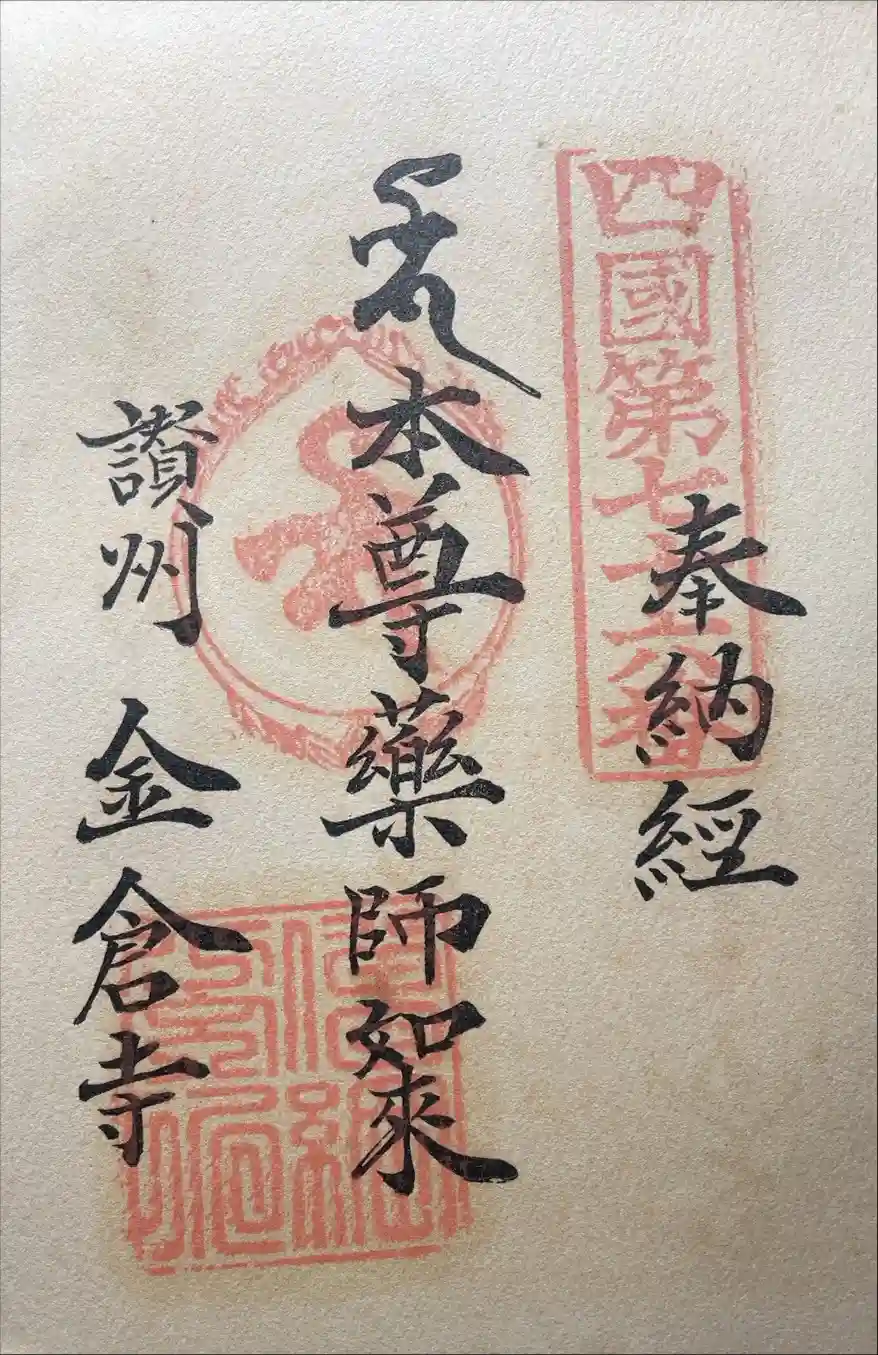 四國第七十六番
奉納經
本尊藥師如來
讃州 金倉寺